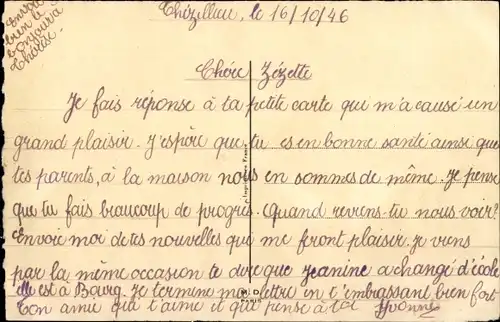 Thézillieu, le 16/10/46
Envoie
bien le
bonjour à
Thérèse.
Chère Zézette
Je fais réponse à ta petite carte qui m'a causé un
grand plaisir. J'espère que tu es en bonne santé ainsi que
tes parents, à la maison nous en sommes de même. Je pense
que tu fais beaucoup de progrès. Quand reviens-tu nous voir?
Envoie moi de tes nouvelles qui me feront plaisir. Je viens
par la même occasion te dire que Jeanine a changé d'école
elle est à Bourg. Je termine ma lettre en t'embrassant bien fort
Ton amie qui t'aime et qui pense à toi Yvonne